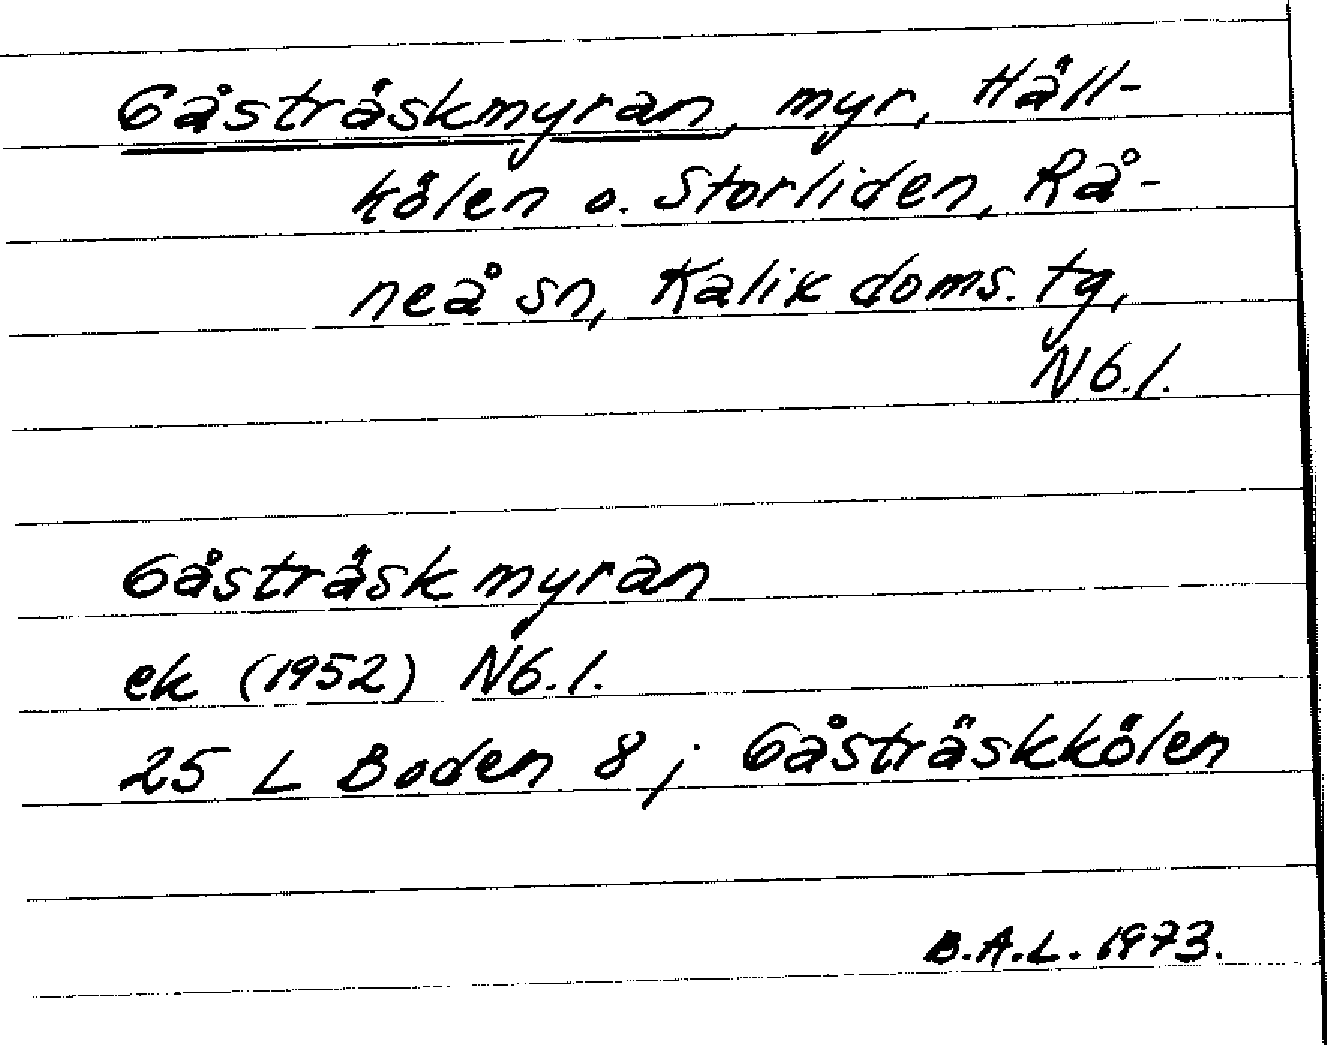 Gåsträskmyran, myr, Häll-
kölen o. Storliden, Rå-
neå sn, Kalix doms. tg,
Nb.l.
Gåsträskmyran
ek (1952) Nb.l.
25 L Boden 8; Gåsträskkölen
B.A.L. 1973.